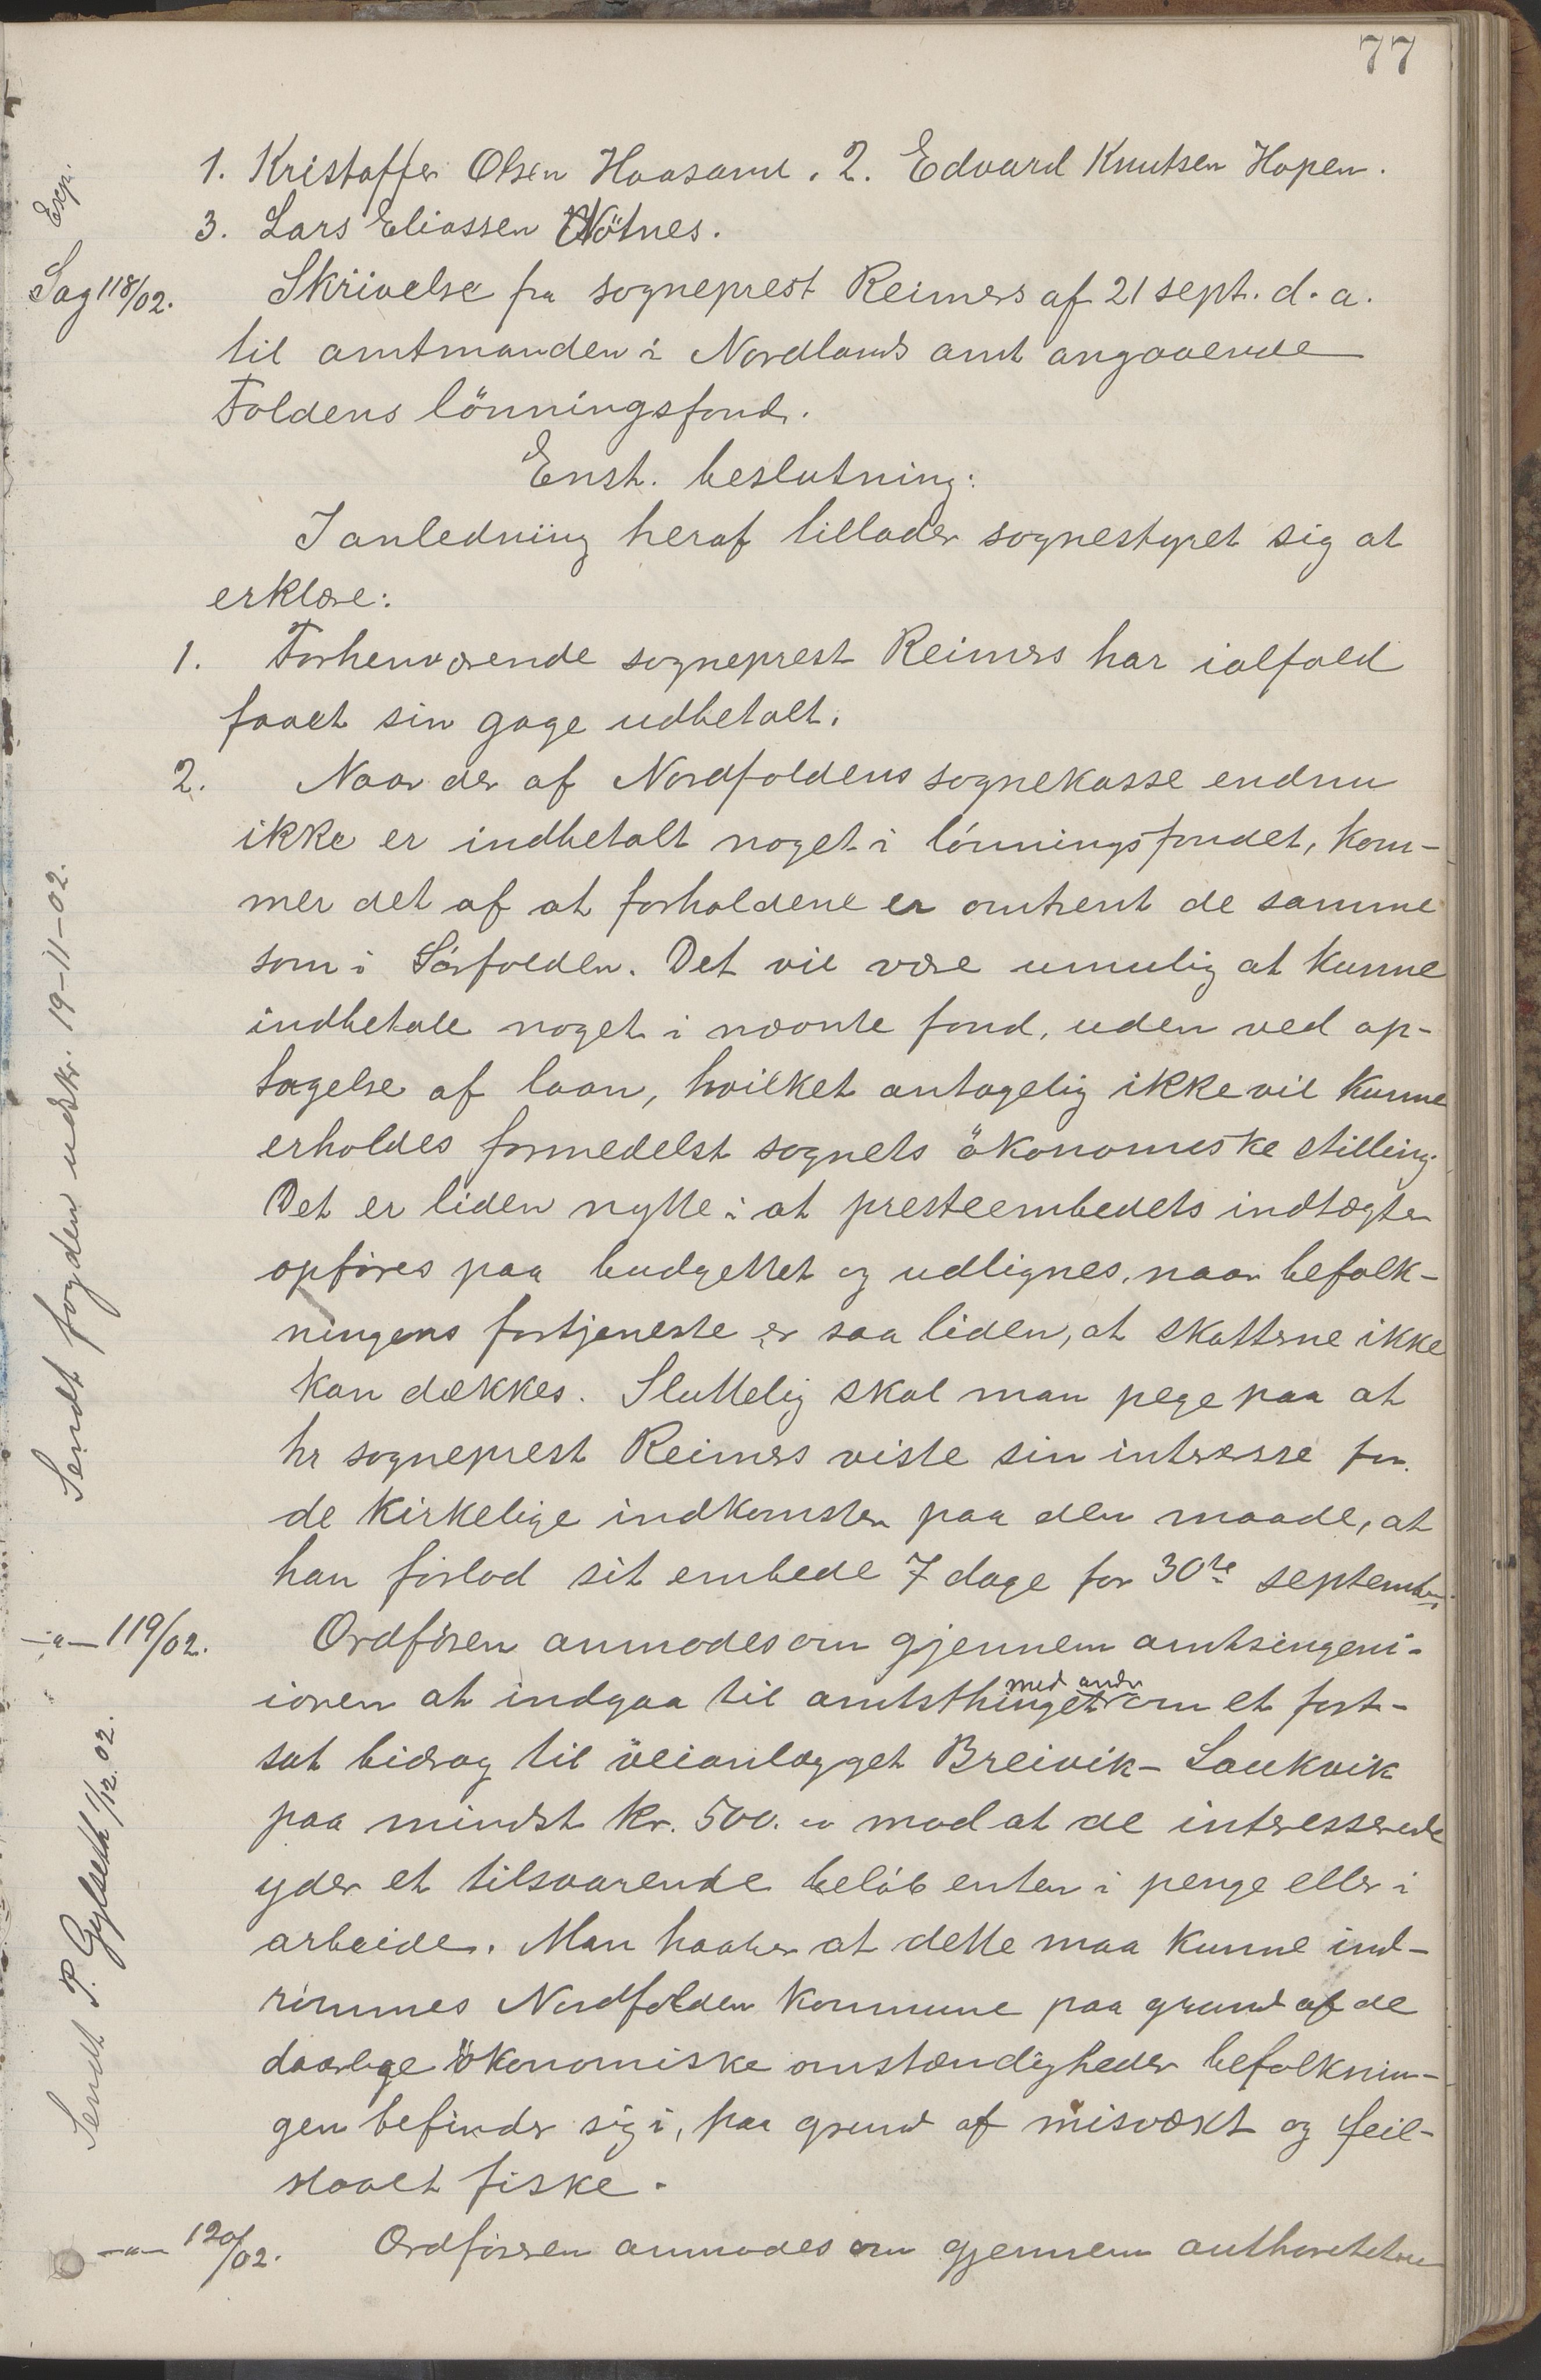 77
1. Kristoffer Olsen Haasand. 2. Edvard Knutsen Hopen.
3. Lars Eliassen Nötnes.
Exp.
Sag 118/02. Skrivelse fra sogneprest Reimers af 21 sept. d. a.
til amtmanden i Nordlands amt angaaende
Foldens lönningsfond.
Enst. beslutning:
I anledning heraf tillader sognestyret sig at
erklære:
1. Forhenværende sogneprest Reimers har ialfald
faaet sin gage udbetalt.
2. Naar der af Nordfoldens sognekasse endnu
ikke er indbetalt noget i lönningsfondet, kom-
mer det af at forholdene er omtrent de samme
som i Sörfolden. Det vil være umulig at kunne
indbetale noget i nævnte fond, uden ved op-
tagelse af laan, hvilket antagelig ikke vil kunne
erholdes formedelst sognets ökonomiske stilling.
Det er liden nytte i at presteembedets indtægter
opföres paa budgettet og udlignes, naar befolk-
ningens fortjeneste er saa liden, at skatterne ikke
kan dækkes. Sluttelig skal man pege paa at
hr sogneprest Reimers viste sin interesse for
de kirkelige indkomster paa den maade, at
han forlod sit embede 7 dage för 30te september.
Sendt fogden udskr. 19-11-02.
-"- 119/02. Ordfören anmodes om gjennem amtsingeni-
iören at indgaa til amtsthinget med andr om et fort-
sat bidrag til veianlægget Breivik - Laukvik
paa mindst kr. 500. " mod at de interesserede
yder et tilsvarende belöb enten i penge eller i
arbeide. Man haaber at dette maa kunne ind-
römmes Nordfolden kommune paa grund af de
daarlige ökonomiske omstændigheder befolknin-
gen befinder sig i, paa grund af misvækst og feil-
slaaet fiske.
Sendt P. Gylseth 1/12 02.
-"- 120/02. Ordföreren anmodes om gjennem authoriteterne